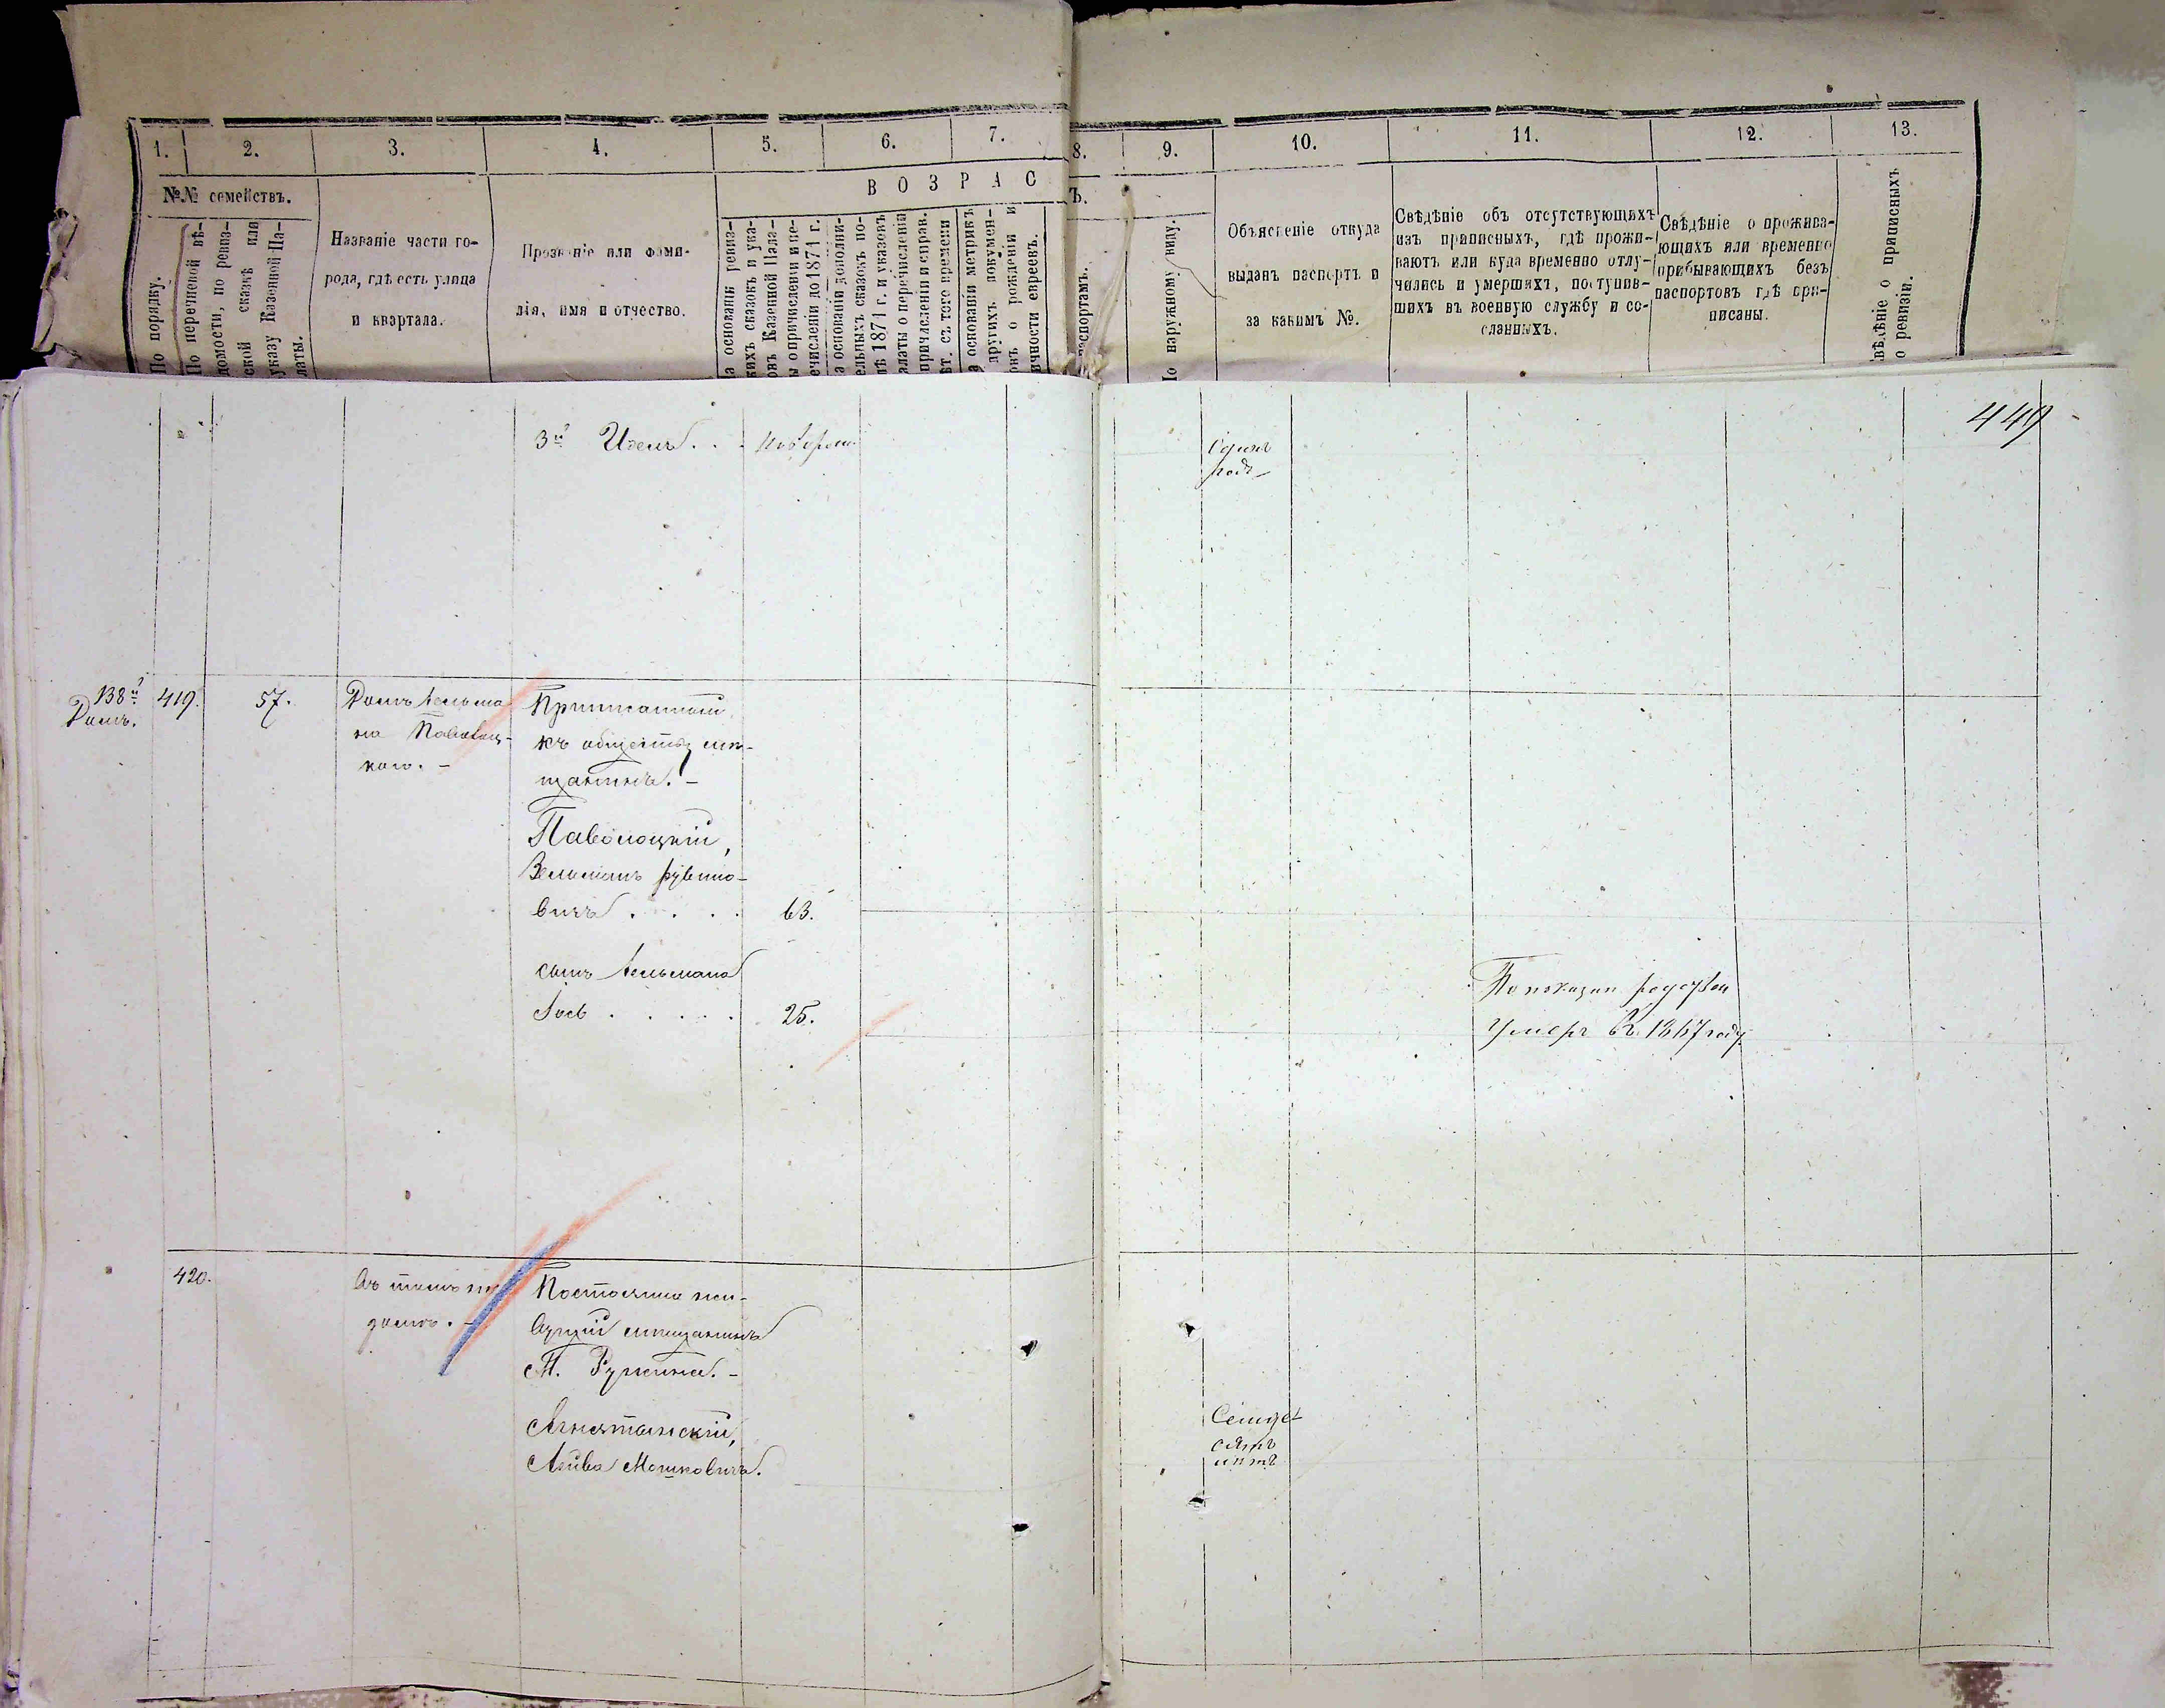 1. 2. 3. 4. 5. 6. 7. 8. 9. 10. 11. 12. 13.
№№ семействъ.
По порядку.
По перечневой вѣ-
домости, по ревиз-
ской сказкѣ или
указу Казенной Па-
латы.
Названіе части го-
рода, гдѣ есть улица
и квартала.
Прозваніе или фами-
лія, имя и отчество.
ВОЗРАС
Ъ.
а основаніи ревиз-
кихъ сказокъ и ука-
овъ Казенной Пала-
ы о причисленіи и пе-
ечисленіи до 1871 г.
а основаніи дополни-
ельныхъ сказокъ по-
лѣ 1871 г. и указовъ
алаты о перечисленіи
причисленіи и справ.
вт. съ того времени
а основаніи метрикъ
другихъ докумен-
овъ о рожденіи и
ичности евреевъ.
аспортамъ.
По наружному виду.
Объясненіе откуда
выданъ паспортъ и
за какимъ №.
Свѣдѣніе объ отсутствующихъ
изъ приписныхъ, гдѣ прожи-
ваютъ или куда временно отлу-
чились и умершихъ, поступив-
шихъ въ военную службу и со-
сланныхъ.
Свѣдѣніе о прожива-
ющихъ или временно
прибывающихъ безъ
паспортовъ гдѣ при-
писаны.
вѣдѣніе о приписныхъ
о ревизіи.
449
3й Ицель . .
Одинъ
годъ
138й
Домъ.
419.
57.
Домъ Зельма
на Паволоц-
каго. -
Приписанный
къ обществу мѣ-
щанинъ. -
Паволоцкій,
Зельманъ Рувино-
вичъ . . . . 63.
сынъ Зельмана
Іось . . . . . 25.
По показан
умеръ въ 1867 году
420.
Въ томъ же
домѣ. -
Постоянно жи-
вущій мѣщанинъ
М. Ружина. -
Аснѣ
Акива Мошковичъ.
Семьде
сятъ
лѣтъ